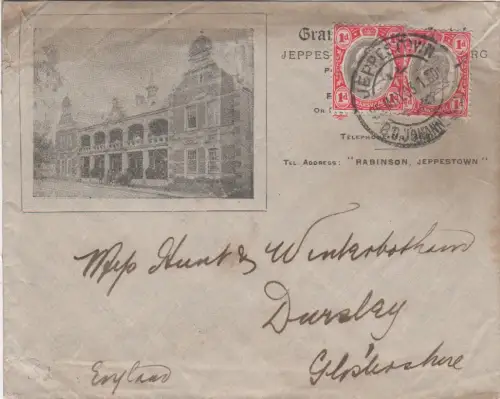 Gra
JEPPES RG
TELEPHONE
TEL. ADDRESS: "RABINSON, JEPPESTOWN"
1d 1d
1d 1d
JEPPESTOWN
Mess Hunt & Winterbotham
Dursley
Glo'stershire
England